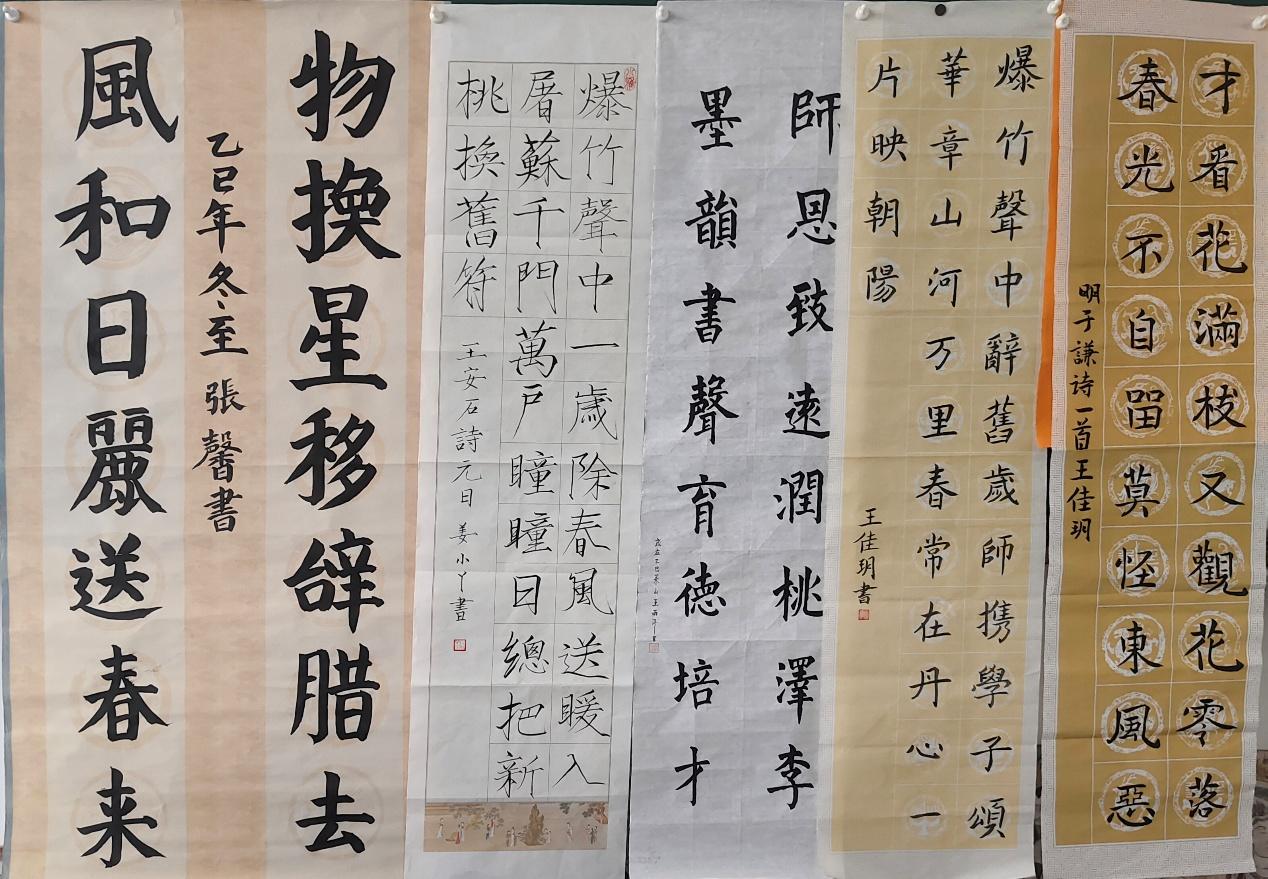 才看花滿枝又觀花零落
春光不自留莫怪東風惡
明于謙詩一首王佳玥
爆竹聲中辭舊歲師携學子頌
華章山河万里春常在丹心一
片映朝陽
王佳玥書
師恩致遠潤桃澤李
墨韻書聲育德培才
爆竹聲中一歲除春風送暖入
屠蘇千門萬戶瞳瞳日總把新
桃換舊符
王安石詩元日 姜小丫書
物換星移辞腊去
乙巳年冬至 張馨書
風和日麗送春来